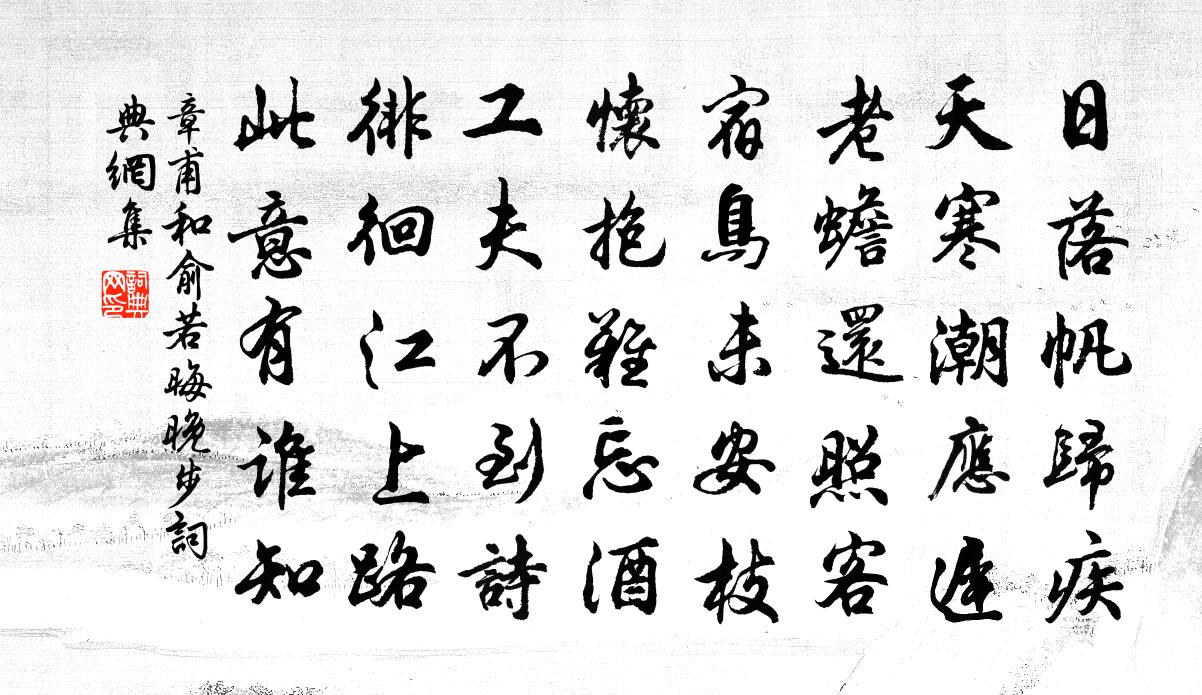 日落帆歸疾
天寒潮應遲
老蟾還照客
宿鳥未安枝
懷抱難忘酒
工夫不到詩
徘徊江上路
此意有誰知
章甫和俞若晦晚步詞
典網集
詞典
网印